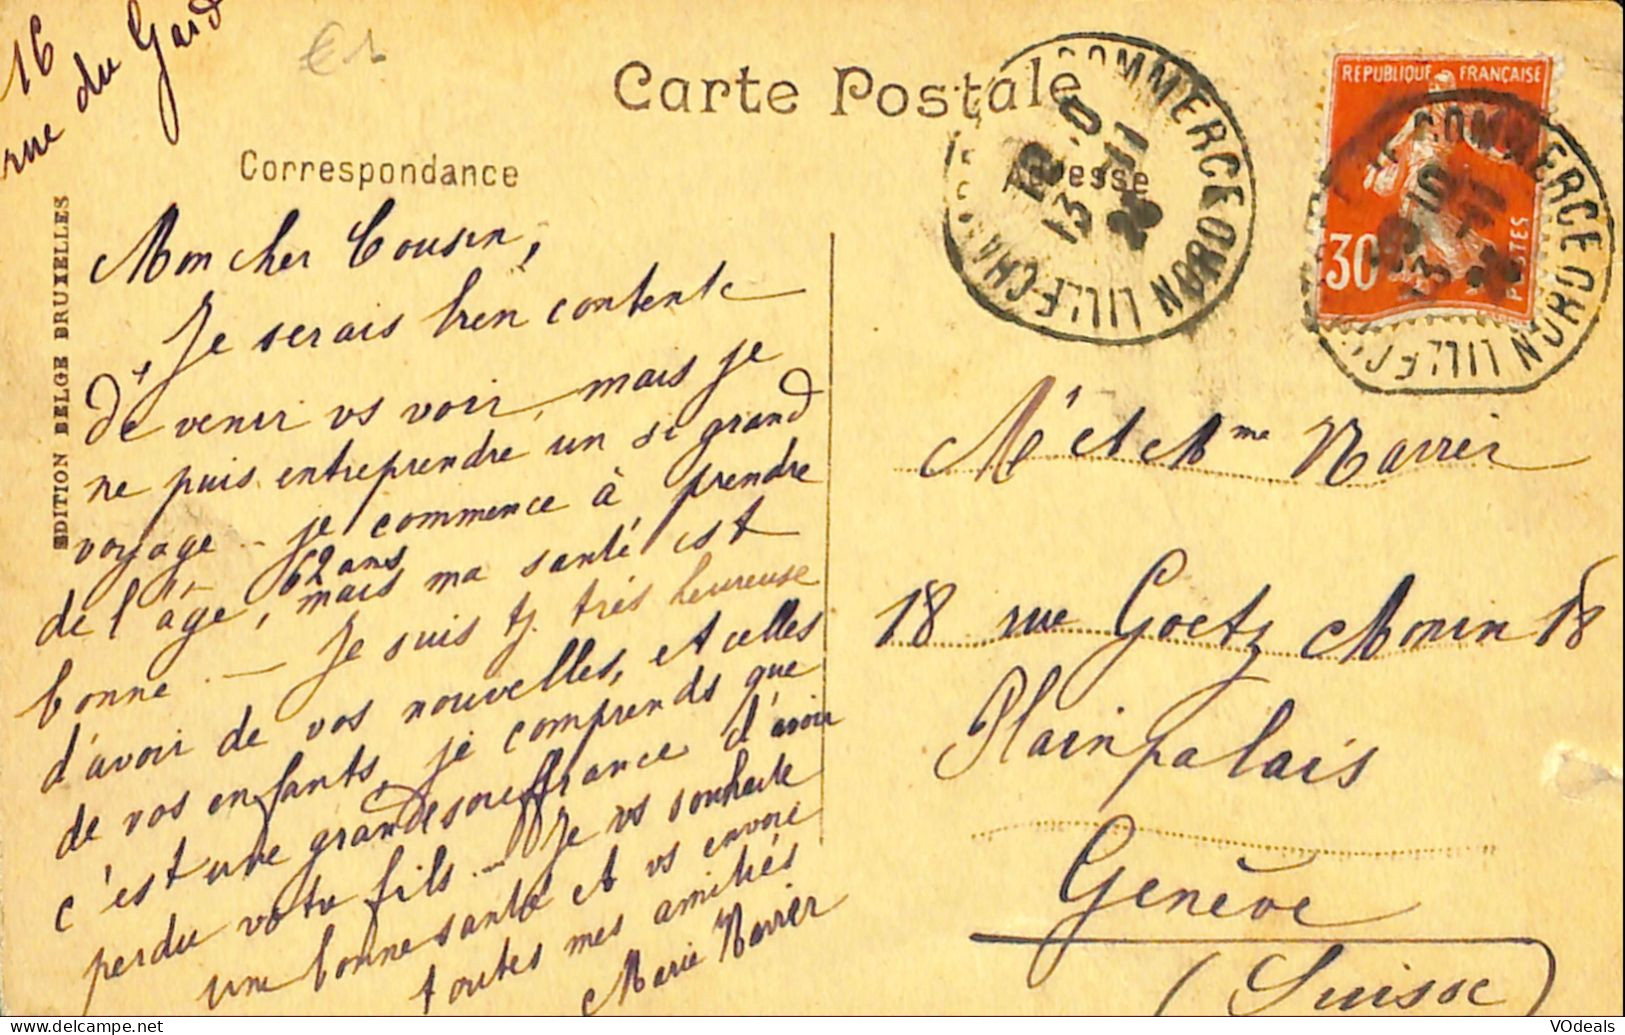 16
rue du Gard
Carte Postale
Correspondance
Adresse
EDITION BELGE BRUXELLES
Mon cher Cousin,
Je serais bien contente
de venir vs voir, mais je
ne puis entreprendre un si grand
voyage - je commence à prendre
de l'âge, 62 ans mais ma santé est
bonne - Je suis tj. très heureuse
d'avoir de vos nouvelles, et celles
de vos enfants, je comprends que
c'est une grande souffrance d'avoir
perdu votre fils - Je vs souhaite
une bonne santé et vs envoie
toutes mes amitiés
Marie Narrer
COMMERCE
LILLE
NORD
13 - 11
REPUBLIQUE FRANÇAISE
30
POSTES
COMMERCE
LILLE
NORD
Mr et Mme Narrer
18 rue Goetz Monin 18
Plainpalais
Genève
(Suisse)
VOdeals